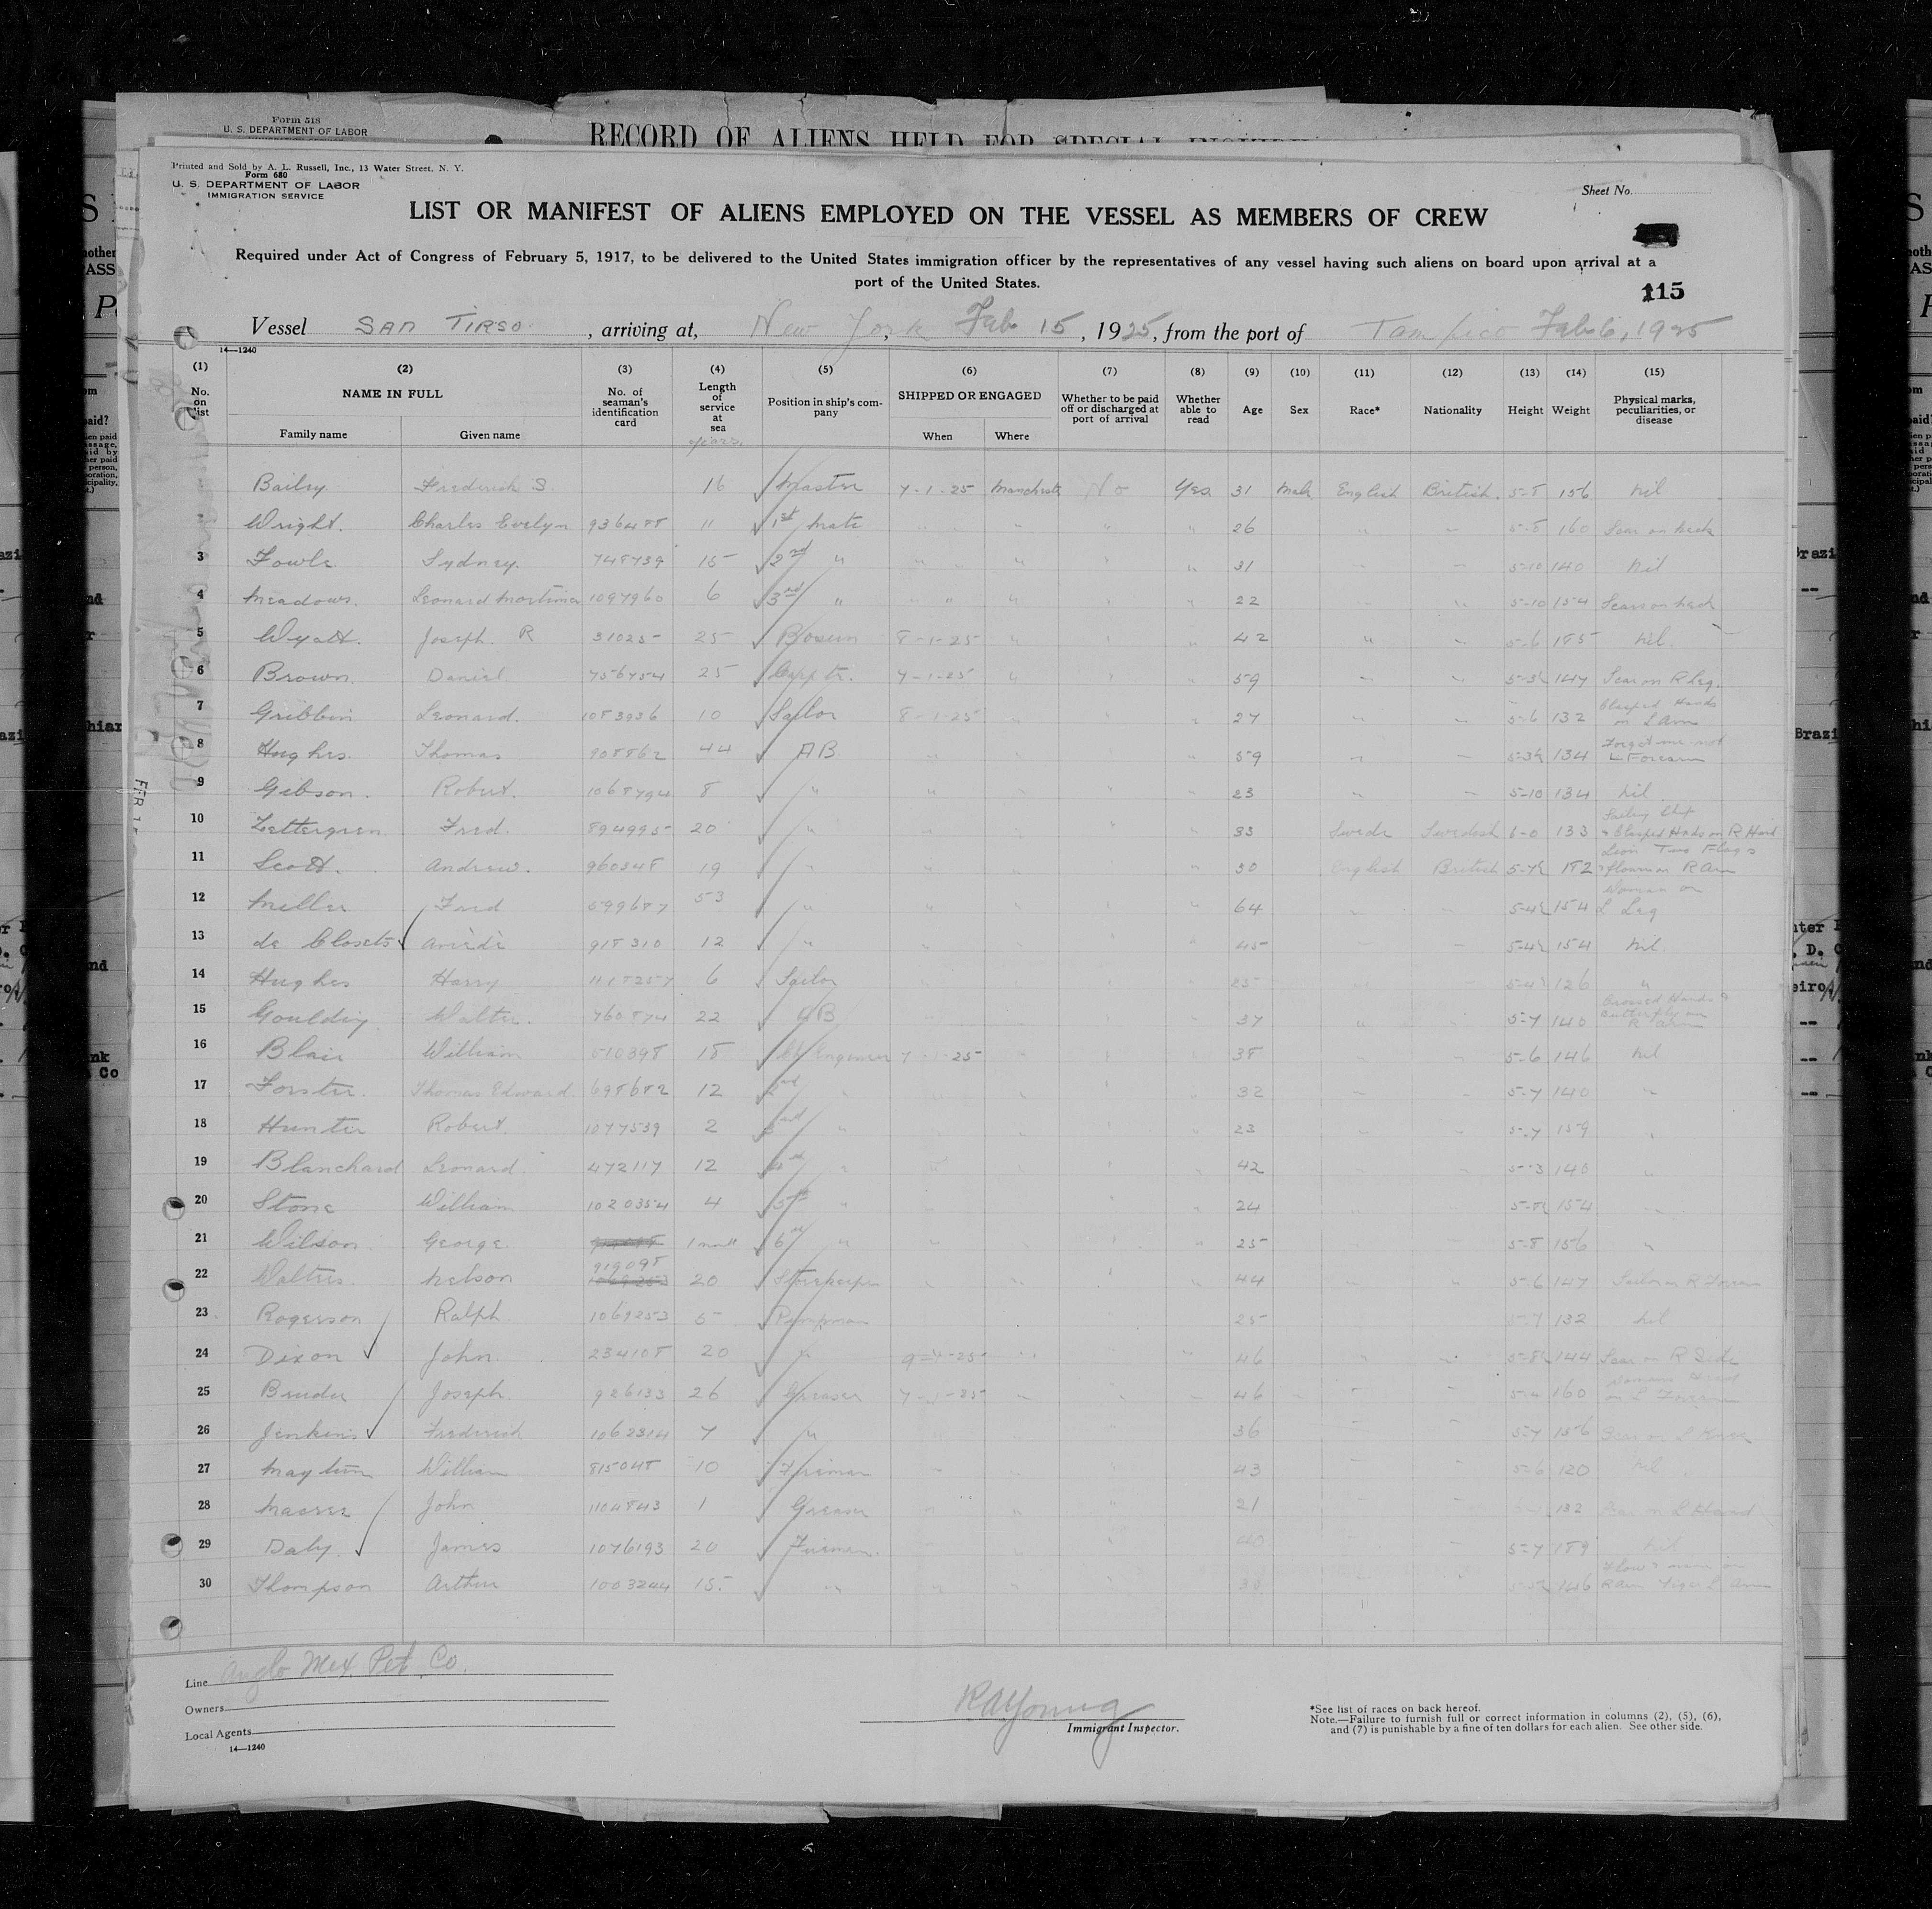 Form 518
U. S. DEPARTMENT OF LABOR
RECORD OF ALIENS HELD FOR SPECIAL INQUIRY
Printed and Sold by A. L. Russell, Inc., 13 Water Street, N. Y.
Form 680
U. S. DEPARTMENT OF LABOR
IMMIGRATION SERVICE
Sheet No.
LIST OR MANIFEST OF ALIENS EMPLOYED ON THE VESSEL AS MEMBERS OF CREW
Required under Act of Congress of February 5, 1917, to be delivered to the United States immigration officer by the representatives of any vessel having such aliens on board upon arrival at a
port of the United States.
115
Vessel SAN TIRSO, arriving at, New York Feb 15, 1925, from the port of Tampico Feb 6, 1925
14—1240
(1) (2) (3) (4) (5) (6) (7) (8) (9) (10) (11) (12) (13) (14) (15)
No. on list NAME IN FULL Family name Given name No. of seaman's identification card Length of service at sea years Position in ship's company SHIPPED OR ENGAGED When Where Whether to be paid off or discharged at port of arrival Whether able to read Age Sex Race* Nationality Height Weight Physical marks, peculiarities, or disease
Bailey Frederick S. 16 Master 7-1-25 No Yes 31 Male English British 5-8 156 Nil
Wright. Charles Evelyn 936488 11 1st Mate " " " " 26 " " 5-8 160 Scar on Neck
3 Fowle Sydney. 748739 15 2nd " " " " " " 31 " " 5-10 140 Nil
4 Meadows. Leonard Mortimer 1097960 6 3rd " " " " " " 22 " " 5-10 154
5 Wyatt. Joseph. R 31025 25 Bosun 8-1-25 " " " 42 " " 5-6 185 Nil.
6 Brown. Daniel 756754 25 7-1-25 " " " 59 " " 147 Scar on R Leg.
7 Gribbin Leonard. 1083936 10 Sailor 8-1-25 " " " 27 " " 5-6 132 Clasped Hands on L Arm
8 Hughes. Thomas 908862 44 AB " " " " 59 " " 134 Forget me not L Forearm
9 Gibson. Robert. 1068794 8 " " " " " 23 " " 5-10 134 Nil
10 Zettergren Fred. 894995 20 " " " " " 33 Swede Swedish 6-0 133 Sailing Ship & Clasped Hands on R Hand
11 Scott. Andrew. 960348 19 " " " " " 30 English British 182 Lion Two Flags
12 Miller Fred 599687 53 " " " " " 64 " " 154 Woman on L Leg
13 de Closets 918310 12 " " " " " 45 " " 154 Nil.
14 Hughes Harry 1118257 6 Sailor 25 126 "
15 Goulding Walter. 760874 22 AB 37 " " 5-7 140 Crossed Hands & Butterfly on R Arm
16 Blair William 510398 18 Ch Engineer 7-1-25 38 5-6 146 Nil
17 Forster. Thomas Edward 698682 12 2nd " 32 5-7 140 "
18 Hunter Robert. 1077539 2 3rd " 23 5-7 159 "
19 Blanchard Leonard. 472117 12 " 42 140 "
20 Stone William 1020354 4 5th " 24 154 "
21 Wilson George. 1 month 6th " 25 5-8 156 "
22 Walters. Nelson 919098 20 Storekeeper 44 5-6 147
23 Rogerson Ralph 1069253 5 Pumpman 25 132 Nil
24 Dixon John. 234108 20 " 46 144 Scar on R Side
25 Joseph. 926133 26 Greaser 46 5-4 160 Womans Head on L Forearm
26 Jenkins Frederick 1062314 7 " 36 5-7 156 Scar on L Knee
27 William 815048 10 Fireman 43 5-6 120 Nil
28 Macree John 1104843 1 Greaser 21 132 Scar on L Hand
29 Daly. James 1076193 20 Fireman. 40 5-7 189 Nil
30 Thompson Arthur 1003244 15. " 146
Line Anglo Mex. Pet. Co.
Owners
Local Agents
14—1240
RAYoung
Immigrant Inspector.
*See list of races on back hereof.
Note.—Failure to furnish full or correct information in columns (2), (5), (6),
and (7) is punishable by a fine of ten dollars for each alien. See other side.